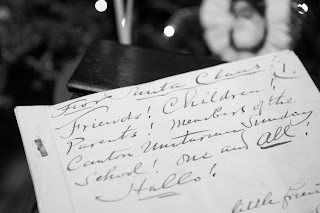 From Santa Claus! 1.
Friends! Children!
Parents! Members of the
Canton Unitarian Sunday
School! One and All!
Hallo!
little friend